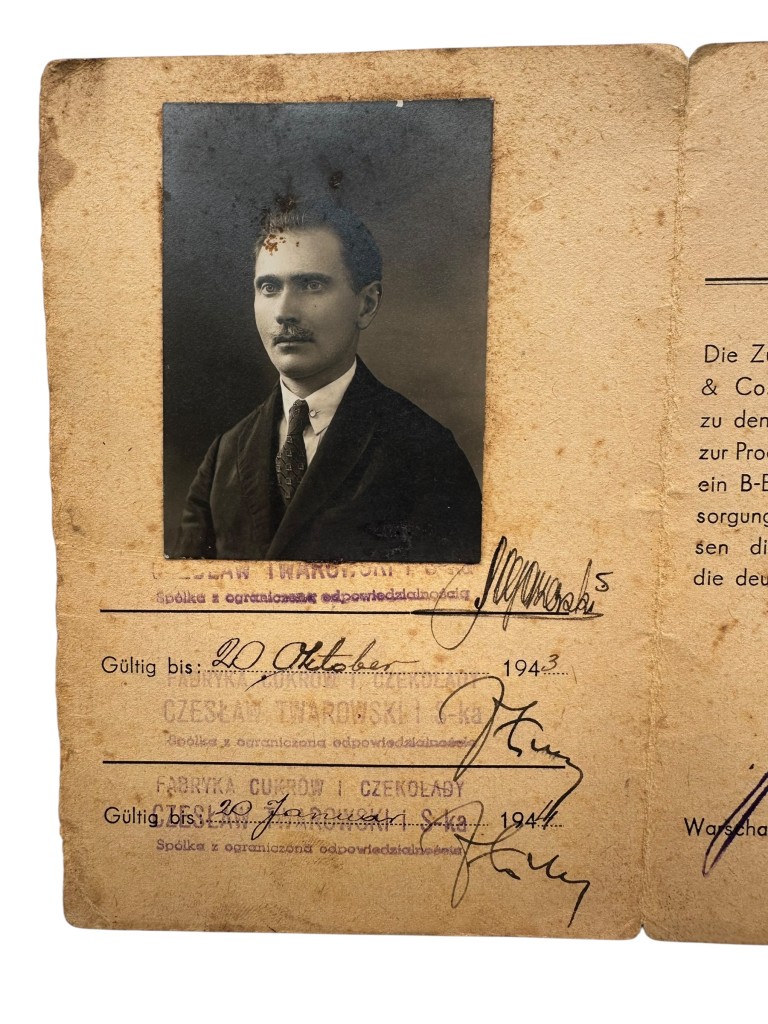 CZESŁAW TWAROWSKI i S-ka
Spółka z ograniczoną odpowiedzialnością
Gültig bis: 20. Oktober 1943
FABRYKA CUKRÓW I CZEKOLADY
CZESŁAW TWAROWSKI i S-ka
Spółka z ograniczoną odpowiedzialnością
FABRYKA CUKRÓW I CZEKOLADY
Gültig bis: 20 Januar 1944
CZESŁAW TWAROWSKI i S-ka
Spółka z ograniczoną odpowiedzialnością
Die Zu
& Co.
zu den
zur Prod
ein B-B
sorgung
sen di
die deu
Warscha